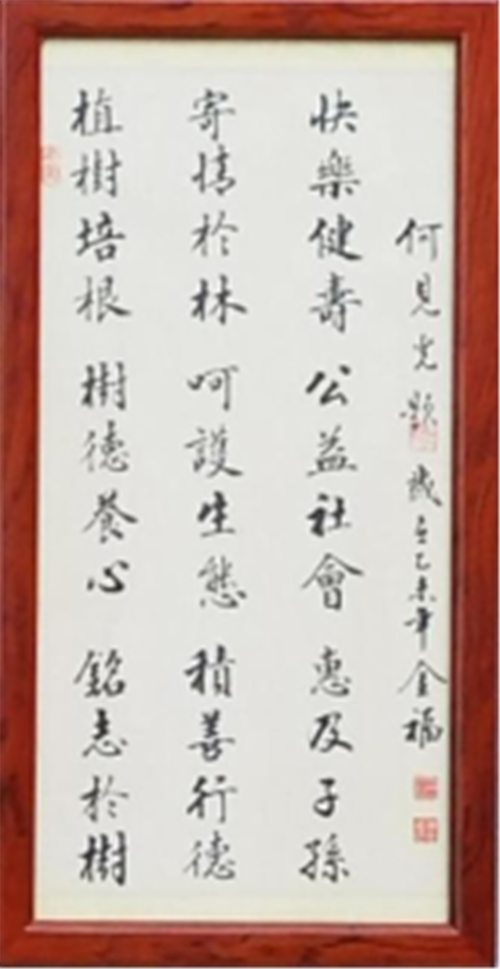 植樹培根 樹德養心 銘志於樹
寄情於林 呵護生態 積善行德
快樂健壽 公益社會 惠及子孫
何見光題 歲在乙未年金福